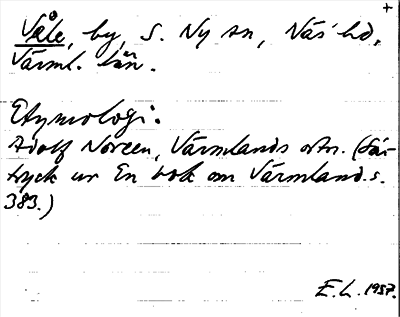 +
Våle, by, S. Ny sn, Näs' hd,
Värml. län.
Etymologi.
Adolf Noreen, Värmlands ortn. (Sär-
tryck ur En bok om Värmland. s.
383.)
E. L. 1937.